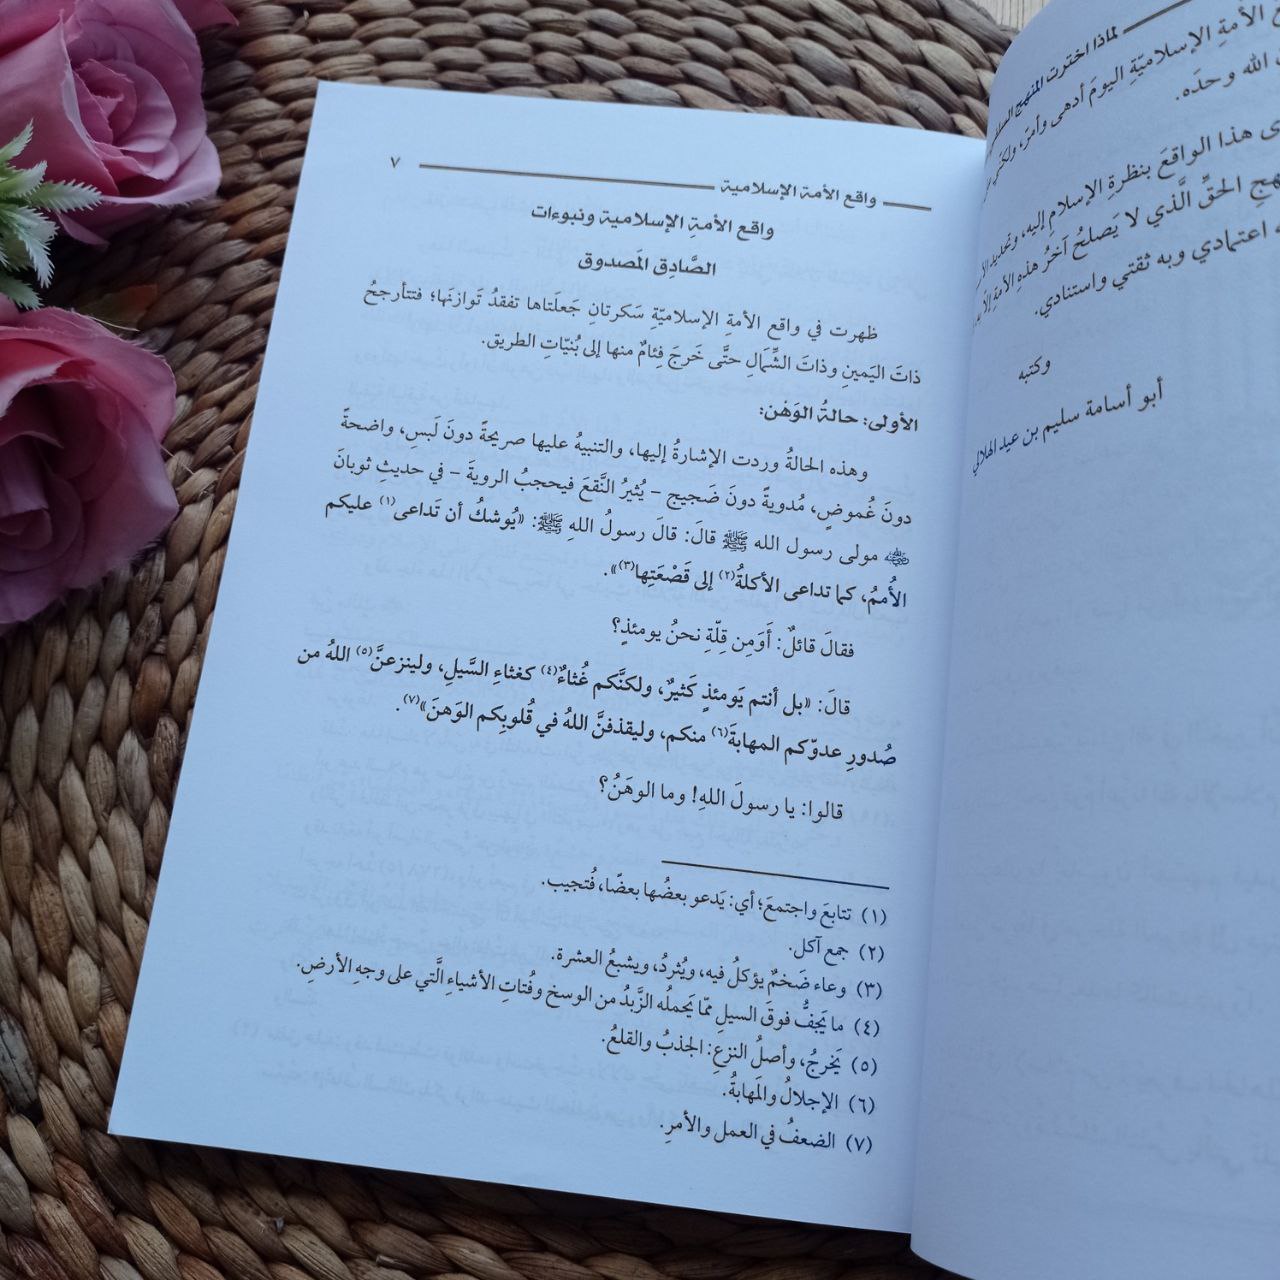 لماذا اخترت المنهج
الأمةِ الإسلاميّةِ اليومَ أدهى وأمرّ، ولكنّي
الله وحدَه.
هذا الواقعَ بنظرةِ الإسلامِ إليه، وتحديد
الحقِّ الَّذي لا يَصلحُ آخرُ هذه الأمةِ
اعتمادي وبه ثقتي واستنادي.
وكتبه
أبو أسامة سليم بن عيد الهلالي
واقع الأمة الإسلامية
٧
واقع الأمةِ الإسلامية ونبوءات
الصَّادِق المَصدوق
ظهرت في واقع الأمةِ الإسلاميّةِ سَكرتانِ جَعلَتاها تفقدُ تَوازنَها؛ فتتأرجحُ
ذاتَ اليَمينِ وذاتَ الشِّمَالِ حتَّى خَرجَ فِئامٌ منها إلى بُنيّاتِ الطريق.
الأولى: حالةُ الوَهَن:
وهذه الحالةُ وردت الإشارةُ إليها، والتنبيهُ عليها صريحةً دونَ لَبسٍ، واضحةً
دونَ غُموضٍ، مُدويةً دونَ ضَجيج – يُثيرُ النَّقعَ فيحجبُ الرويةَ – في حديثِ ثوبانَ
رضي الله عنه مولى رسول الله ﷺ قالَ: قالَ رسولُ اللهِ ﷺ: «يُوشكُ أن تَداعى(١) عليكم
الأُممُ، كما تداعى الأكلةُ(٢) إلى قَصْعَتِها(٣)».
فقالَ قائلٌ: أَوَمِن قِلّةٍ نحنُ يومئذٍ؟
قالَ: «بل أنتم يَومئذٍ كَثيرٌ، ولكنَّكم غُثاءٌ(٤) كغثاءِ السَّيلِ، ولينزعنَّ(٥) اللهُ من
صُدورِ عدوّكم المهابةَ(٦) منكم، وليقذفنَّ اللهُ في قُلوبِكم الوَهنَ»(٧).
قالوا: يا رسولَ اللهِ! وما الوهَنُ؟
(١) تتابعَ واجتمعَ؛ أي: يَدعو بعضُها بعضًا، فُتجيب.
(٢) جمع آكل.
(٣) وعاء ضَخمٌ يؤكلُ فيه، ويُثردُ، ويشبعُ العشرة.
(٤) ما يَجفُّ فوقَ السيلِ ممّا يَحملُه الزَّبدُ من الوسخ وفُتاتِ الأشياءِ الَّتي على وجهِ الأرضِ.
(٥) يَخرجُ، وأصلُ النزعِ: الجذبُ والقلعُ.
(٦) الإجلالُ والمَهابةُ.
(٧) الضعفُ في العمل والأمرِ.